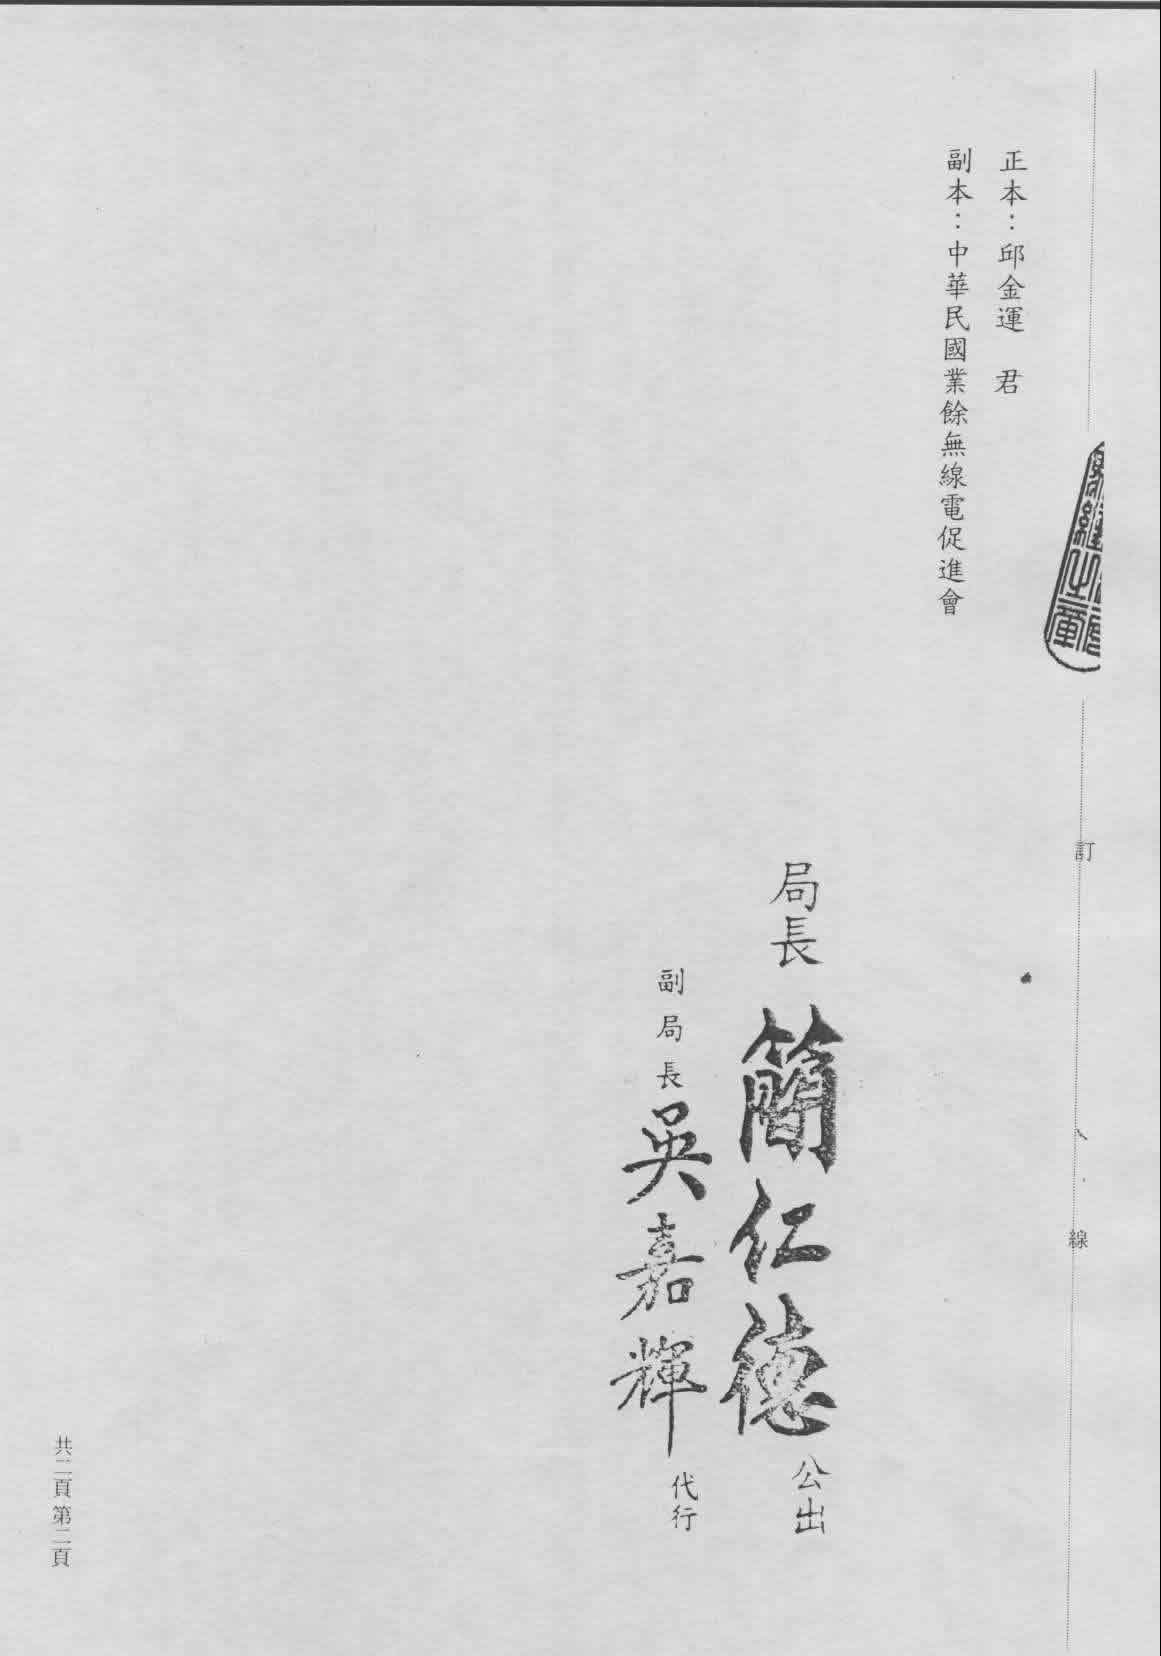 正本：邱金運　君
副本：中華民國業餘無線電促進會
訂
線
局長 簡仁德 公出
副局長 吳嘉輝 代行
共二頁 第二頁